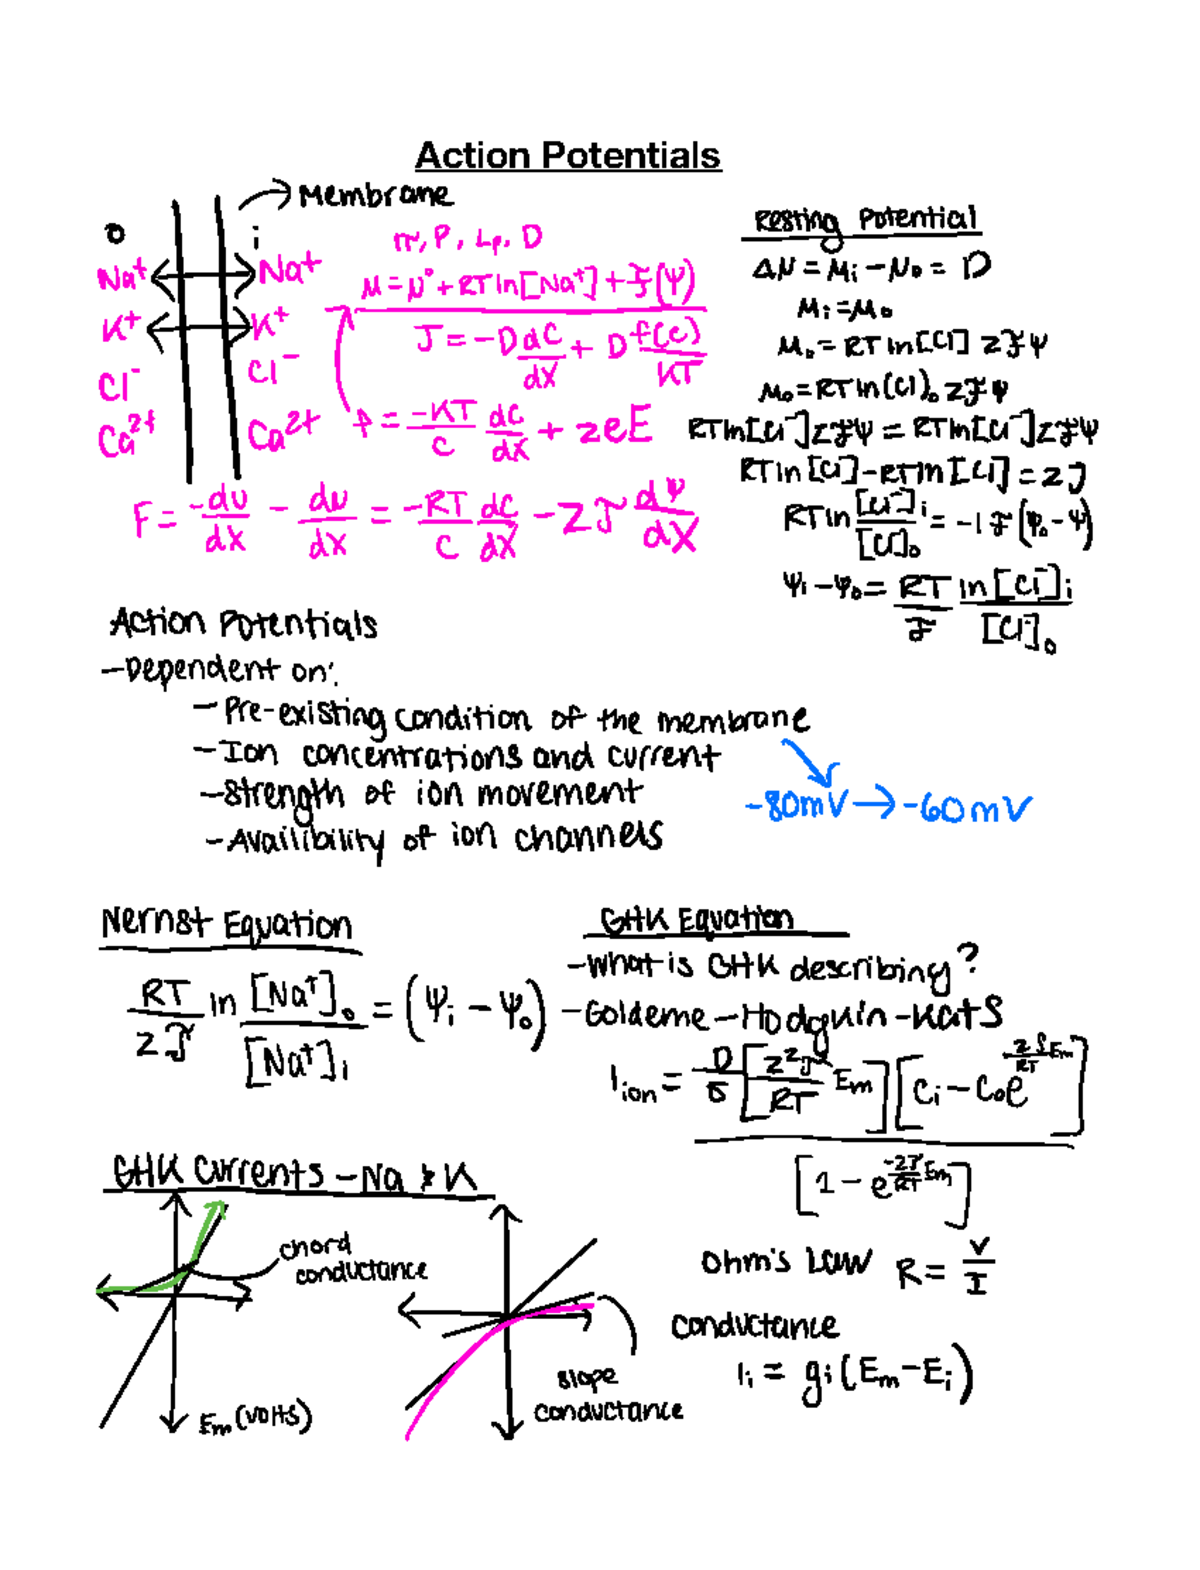 Action Potentials
→ Membrane
o i
Na⁺ Na⁺
K⁺ K⁺
Cl⁻ Cl⁻
Ca²⁺ Ca²⁺
π, P, Lp, D
μ = μ° + RT ln[Na⁺] + F(ψ)
J = -D dC/dX + D f(c)/KT
f = -KT/C dC/dX + zeE
F = -du/dX - du/dX = -RT/C dC/dX - zF dψ/dX
Resting Potential
Δμ = μi - μo = D
μi = μo
μo = RT ln[Cl] zFψ
μo = RT ln(Cl)o zFψ
RT ln[Cl⁻] zFψ = RT ln[Cl⁻] zFψ
RT ln[Cl] - RT ln[Cl] = zJ
RT ln [Cl⁻]i/[Cl]o = -1F(ψo - ψ)
ψi - ψo = RT/F ln [Cl⁻]i/[Cl]o
Action Potentials
- Dependent on:
- Pre-existing condition of the membrane
- Ion concentrations and current
- Strength of ion movement
- Availibility of ion channels
-80mV → -60mV
Nernst Equation
RT/zF ln [Na⁺]o/[Na⁺]i = (ψi - ψo)
GHK Equation
- What is GHK describing?
- Goldeme - Hodgkin - Kats
Iion = D/δ [z²F/RT Em][Ci - Coe^(zFEm/RT)]
[1 - e^(-zF/RT Em)]
GHK Currents - Na & K
chord
conductance
Em (volts)
slope
conductance
Ohm's Law R = V/I
Conductance
Ii = gi(Em - Ei)